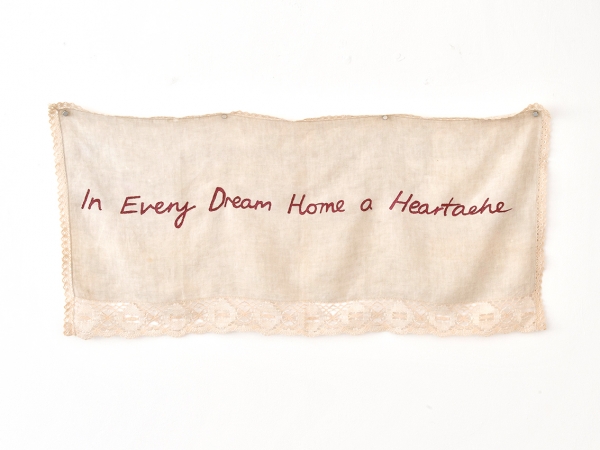 In Every Dream Home a Heartache